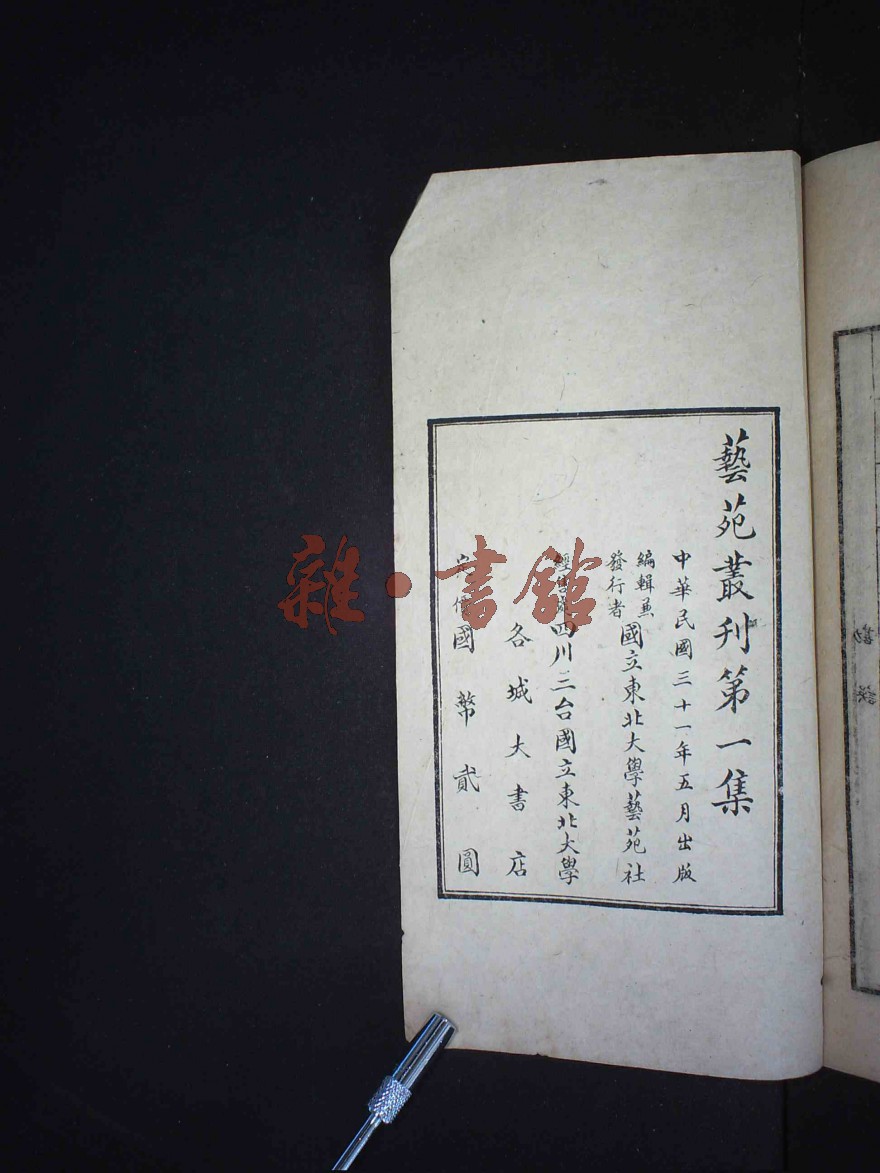 藝苑叢刊第一集
中華民國三十一年五月出版
編輯兼
發行者
國立東北大學藝苑社
經售處四川三台國立東北大學
各城大書店
定價國幣貳圓
雜·書館